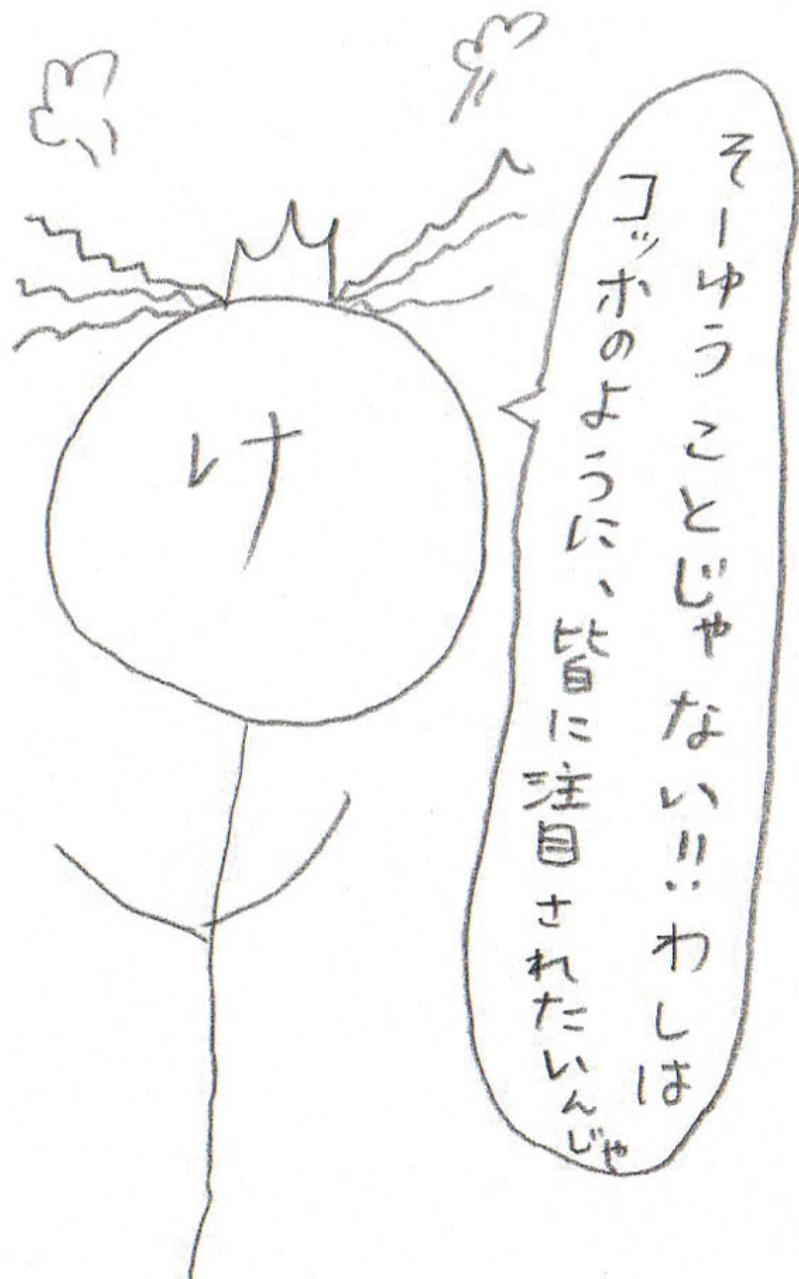 そーゆうことじゃない!!わしは
コッホのように、皆に注目されたいんじゃ
け